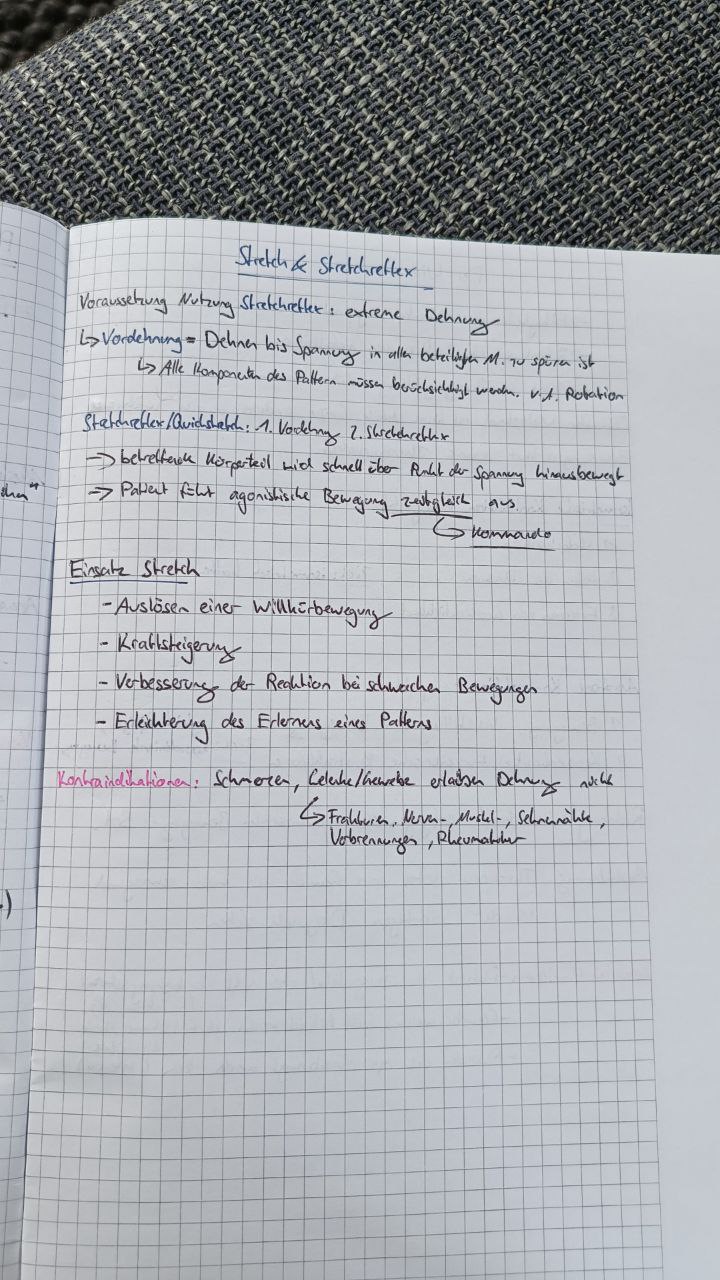 Stretch & Stretchreflex
Voraussetzung Nutzung Stretchreflex: extreme Dehnung
↳ Vordehnung = Dehnen bis Spannung in allen beteiligten M. zu spüren ist
↳ Alle Komponenten des Pattern müssen berücksichtigt werden. v.A. Rotation
Stretchreflex/Quickstretch: 1. Vordehnung 2. Stretchreflex
→ betreffende Körperteil wird schnell über Punkt der Spannung hinausbewegt
→ Patient führt agonistische Bewegung zeitgleich aus
↳ Kommando
Einsatz Stretch
- Auslösen einer Willkürbewegung
- Kraftsteigerung
- Verbesserung der Reaktion bei schwachen Bewegungen
- Erleichterung des Erlernens eines Patterns
Kontraindikationen: Schmerzen, Gelenke/Gewebe erlauben Dehnung nicht
↳ Frakturen, Nerven-, Muskel-, Sehnennähte,
Verbrennungen, Rheumatiker